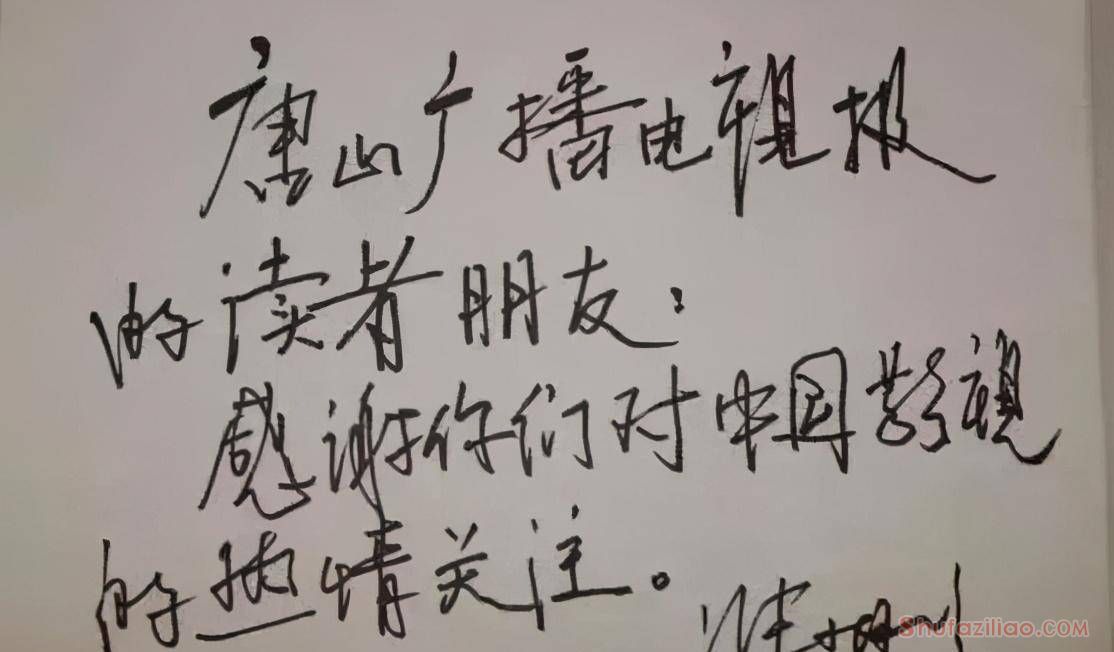 唐山广播电视报
的读者朋友：
感谢你们对中国影视
的热情关注。
Shufaziliao.COM